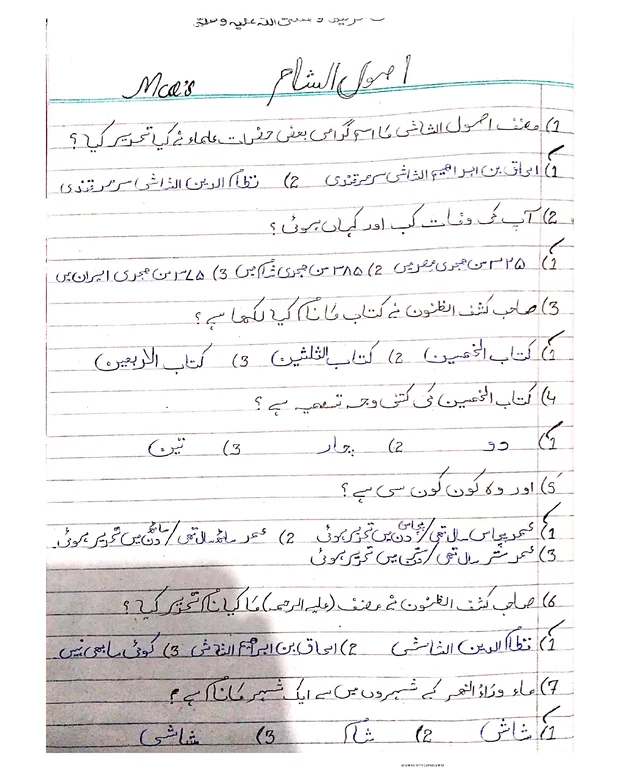 صلی اللہ علیہ وسلم
اصول الشاشی Mcq's
1) مصنف اصول الشاشی کا اسم گرامی بعض حضرات علماء نے کیا تحریر کیا؟
1) اسحاق بن ابراھیم الشاشی سمرقندی 2) نظام الدین الشاشی سمرقندی
2) آپ کی وفات کب اور کہاں ہوئی؟
1) ۳۲۵ سن ھجری مصر میں 2) ۳۸۵ سن ھجری شام میں 3) ۳۷۵ سن ھجری ایران میں
3) صاحب کشف الظنون نے کتاب کا نام کیا لکھا ہے؟
1) کتاب الخمسین 2) کتاب الثلثین 3) کتاب الاربعین
4) کتاب الخمسین کی کتنی وجہ تسمیہ ہے؟
1) دو 2) چار 3) تین
5) اور وہ کون کون سی ہے؟
1) عمر پچاس سال تھی / پچاس دن میں تحریر ہوئی 2) عمر ساٹھ سال تھی / ساٹھ دن میں تحریر ہوئی۔
3) عمر ستر سال تھی / میں تحریر ہوئی
6) صاحب کشف الظنون نے مصنف (علیہ الرحمہ) کا کیا نام تحریر کیا؟
1) نظام الدین الشاشی 2) اسحاق بن ابراھیم الشاشی 3) کوئی سا بھی نہیں
7) ماء وراء النھر کے شہروں میں سے ایک شہر کا نام ہے؟
1) شاش 2) شام 3) شاشی